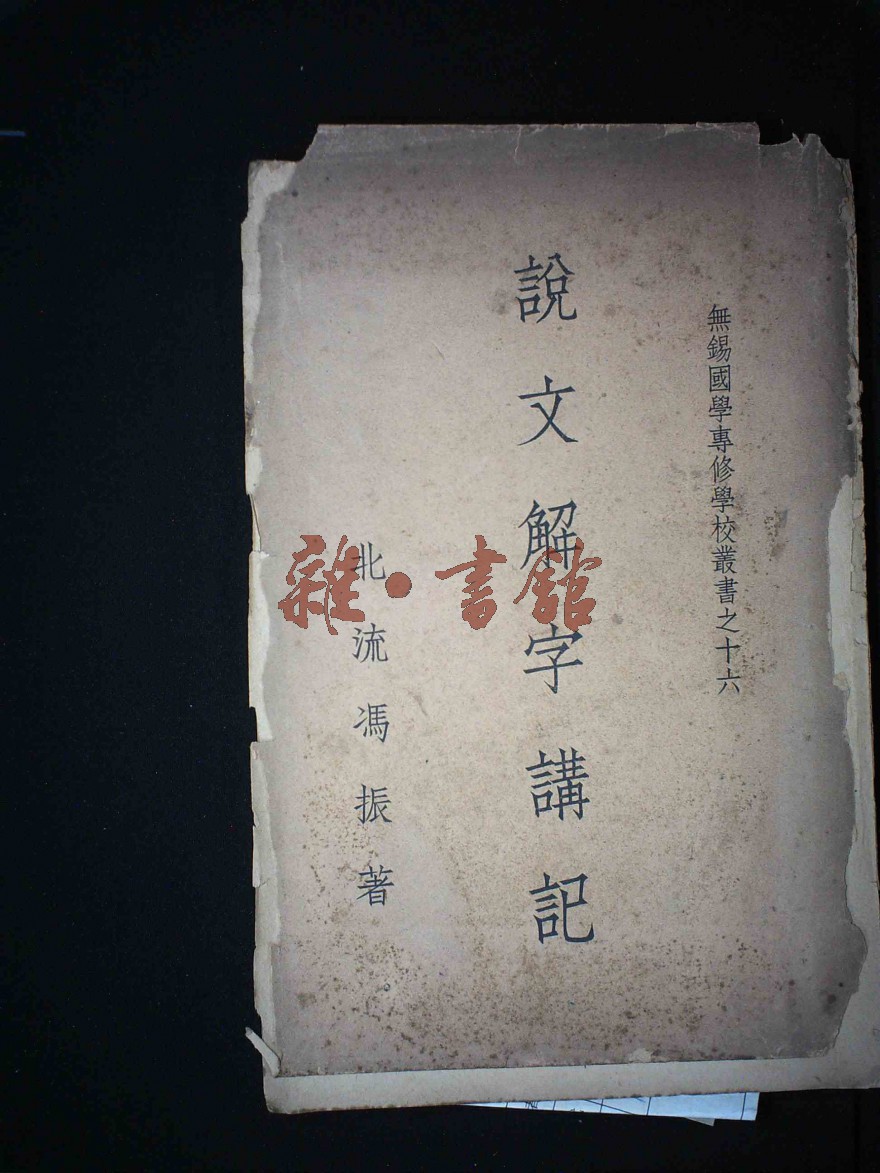 無錫國學專修學校叢書之十六
說文解字講記
北流馮振著
雜·書館